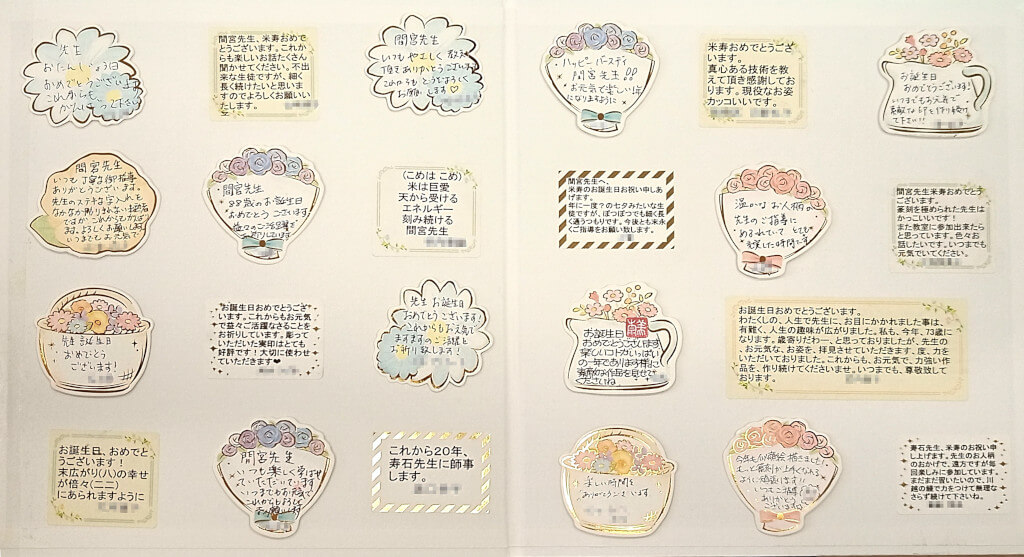 先生
おたんじょう日
おめでとうございます
これからも
間宮先生、米寿おめで
とうございます。これか
らも楽しいお話たくさん
聞かせてください。不出
来な生徒ですが、細く
長く続けたいと思いま
すのでよろしくお願いい
たします。
間宮先生
いつもやさしく教えて
頂きありがとうございます
これからもどうぞよろしく
お願いします♡
ハッピーバースデイ
間宮先生!!
お元気で楽しい1年に
なりますように
米寿おめでとうござ
います。
真心ある技術を教
えて頂き感謝してお
ります。現役なお姿
カッコいいです。
お誕生日
おめでとうございます!
いつまでもお元気で
素敵な印を作り続けて
下さい!!
間宮先生
いつも丁寧な御指導
ありがとうございます。
先生のステキな字入れを
なかなか彫りきれない
ではが これからもがんばり
ます。よろしくお願いします
いつまでもお元気で
間宮先生
88歳のお誕生日
おめでとうございます
益々のご活躍を
お祈りしています
(こめは こめ)
米は巨愛
天から受ける
エネルギー
刻み続ける
間宮先生
間宮先生へ、
米寿のお誕生日お祝い申しあ
げます。
年に一度?の七夕みたいな生
徒ですが、ぼつぼつでも細く長
く通うつもりです。今後とも末永
くご指導をお願い致します。
温かなお人柄
先生のご指導に
めぐまれていて とても
充実した時間です
間宮先生米寿おめでとう
ございます。
篆刻を極められた先生は
かっこいいです!
また教室に参加出来たら
と思っています。色々お
話したいです。いつまでも
元気でいてください。
先生 誕生日
おめでとう
ございます!
お誕生日おめでとうござい
ます。これからもお元気
で益々ご活躍なさることを
お祈りしています。彫って
いただいた実印はとても
好評です!大切に使わせ
ていただきます♥
先生 お誕生日
おめでとうございます!
これからもお元気で
ますますのご活躍を
お祈り致します!
お誕生日
おめでとうございます
楽しいコトがいっぱい
の一年でありますように
素敵な作品を見せて
くださいね。
お誕生日おめでとうございます。
わたしの、人生で先生に、お目にかかれました事は、
有難く、人生の趣味が広がりました。私も、今年、73歳に
なります。歳寄りだわー、と思っておりましたが、先生の
、お元気な、お姿を、拝見させていただきます、度、力を
いただいておりました。これからも、お元気で、力強い作
品を、作り続けてくださいませ。いつまでも、尊敬致して
おります。
お誕生日、おめでと
うございます!
末広がり(八)の幸せ
が倍々(二二)
にあられますように
間宮先生
いつも楽しく学ばせ
ていただいています
いつまでもお元気で
これからもよろしく
お願いします
これから20年、
寿石先生に師事
します。
楽しい時間を
ありがとうございます
もっと篆刻が上手くなれる
ように頑張ります!!
いつもご指導
ありがとう
ございます
寿石先生、米寿のお祝い申
し上げます。先生のお人柄
のおかげで、遠方ですが毎
回楽しみに参加しています。
まだまだ習いたいので、川
越の鰻で力をつけて無理な
さらず続けて下さいね。